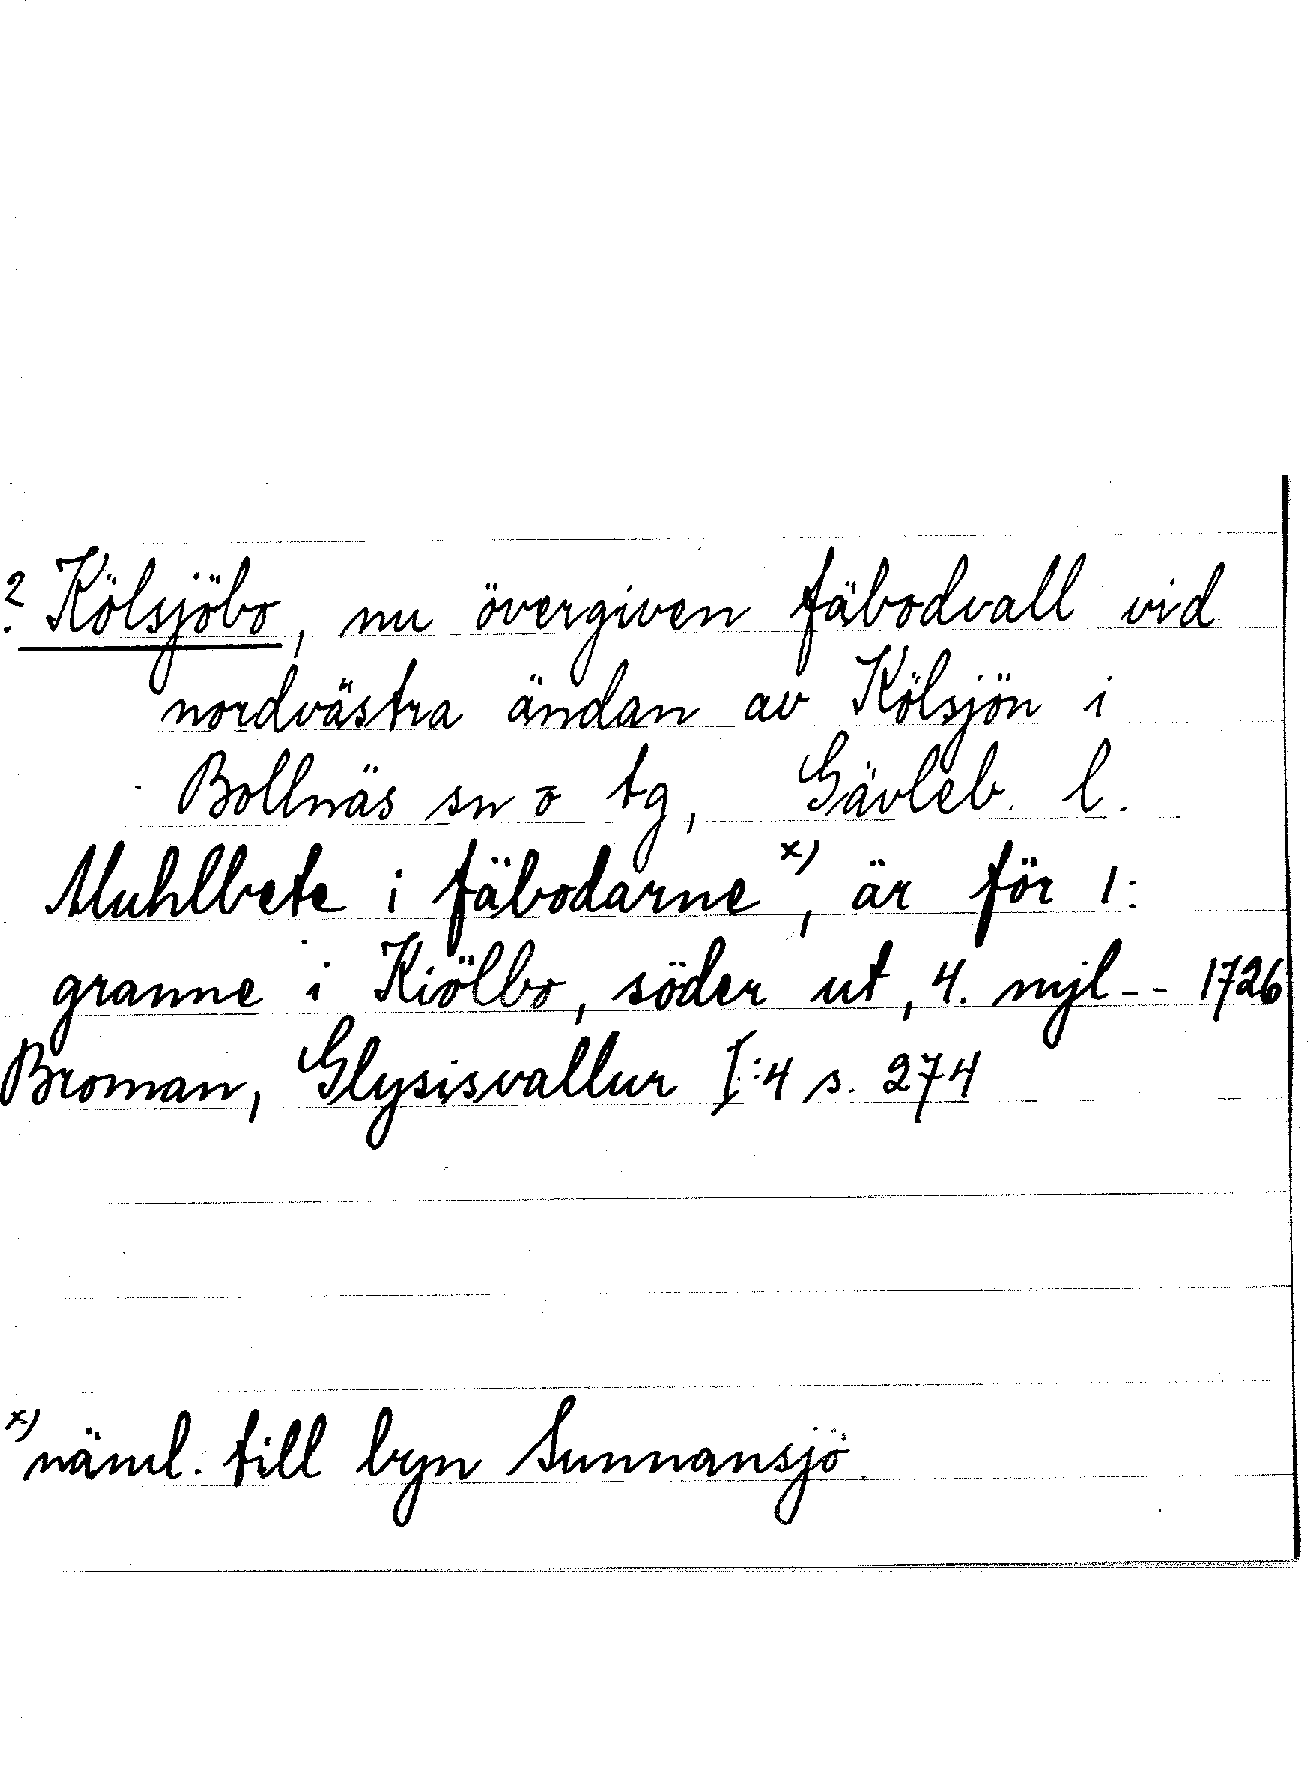 ? Kölsjöbo, nu övergiven fäbodvall vid
nordvästra ändan av Kölsjön i
Bollnäs sn o tg, Gävleb. l.
Muhlbete i fäbodarne x), är för 1:
granne i Kiölbo, söder ut, 4. mjl -- 1726
Broman, Glysisvallur I:4 s. 274
x) näml. till byn Sunnansjö.